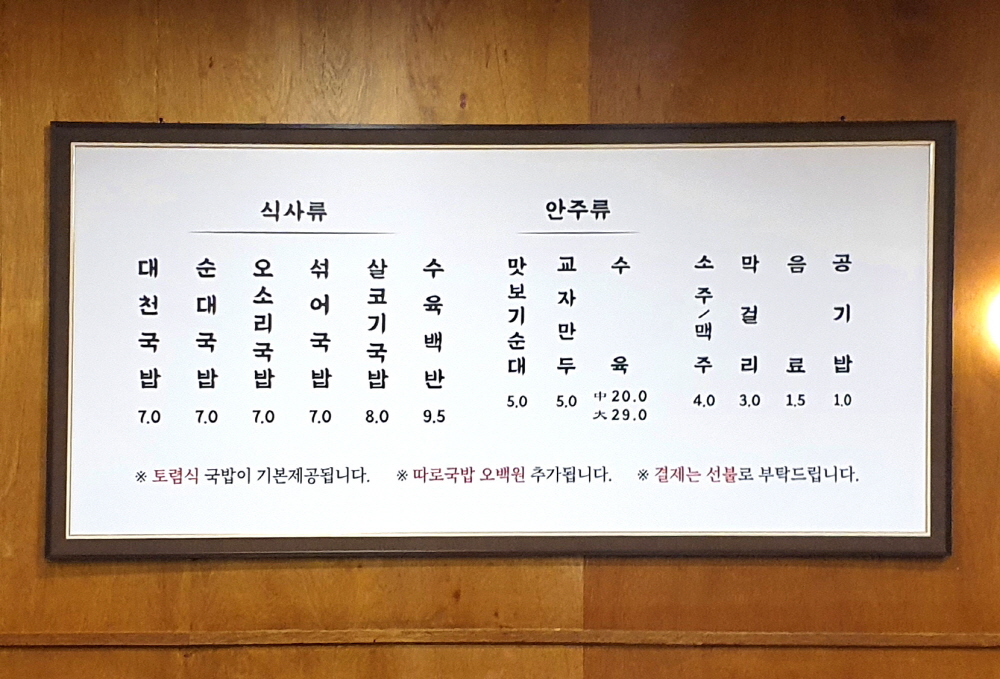 식사류
대천국밥 7.0
순대국밥 7.0
오소리국밥 7.0
섞어국밥 7.0
살코기국밥 8.0
수육백반 9.5
안주류
맛보기순대 5.0
교자만두 5.0
수육 中 20.0
大 29.0
소주/맥주 4.0
막걸리 3.0
음료 1.5
공기밥 1.0
※ 토렴식 국밥이 기본제공됩니다. ※ 따로국밥 오백원 추가됩니다. ※ 결제는 선불로 부탁드립니다.